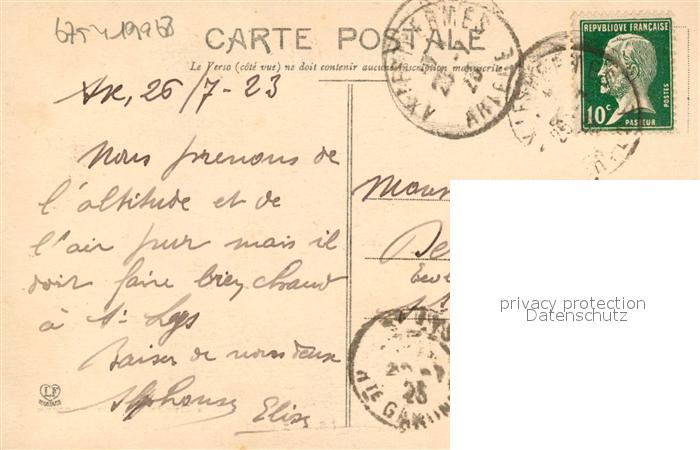 CARTE POSTALE
Le Verso (côté vue) ne doit contenir aucune inscription manuscrite
REPUBLIQUE FRANÇAISE
POSTES
10c
PASTEUR
AX LES THERMES
ARIEGE
Ax, 26/7-23
Nous prenons de
l'altitude et de
l'air pur mais il
doit faire bien chaud
à St Lys
Baiser de nous deux
Alphonse
Elise
23
Hte GARONNE
LF
privacy protection
Datenschutz